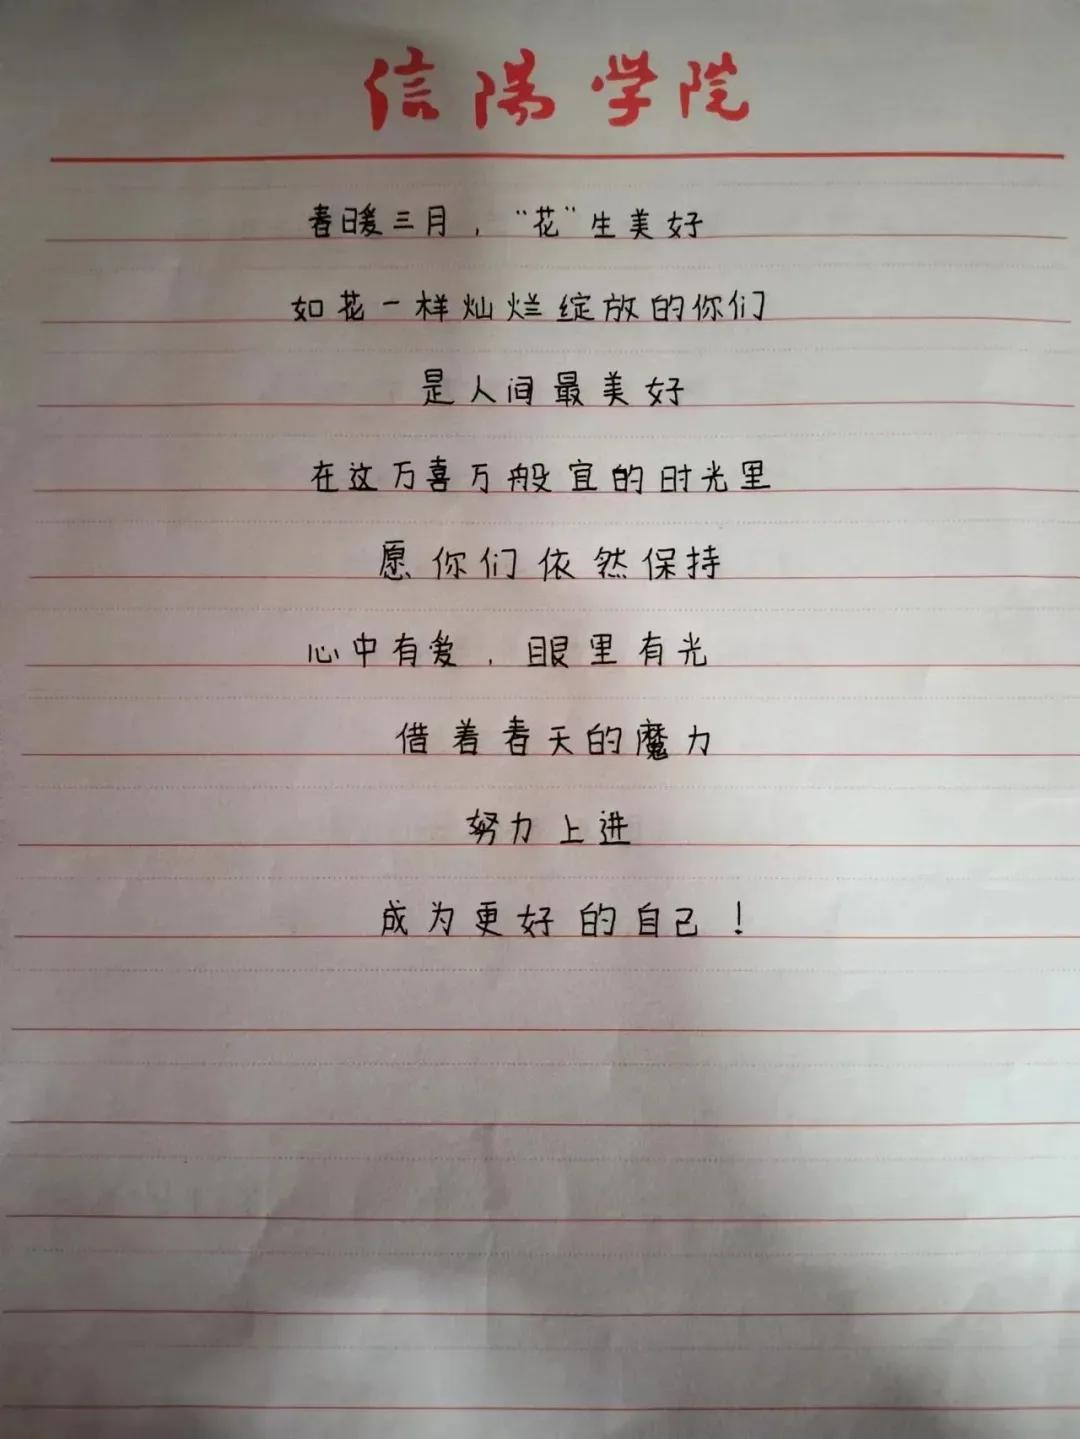 信陽学院
春暖三月，“花”生美好
如花一样灿烂绽放的你们
是人间最美好
在这万喜万般宜的时光里
愿你们依然保持
心中有爱，眼里有光
借着春天的魔力
努力上进
成为更好的自己！